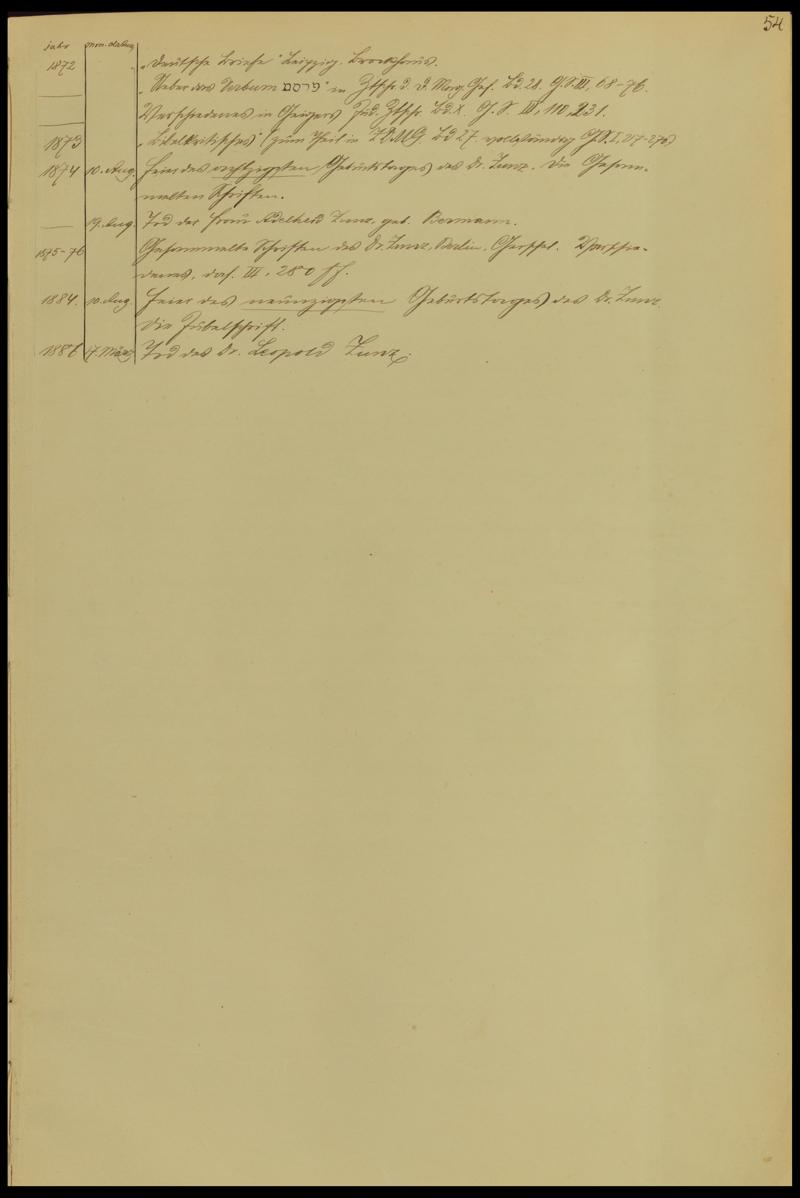 54
Jahr Mon. datum
1872 „Deutsche Briefe“ Leipzig. Brockhaus.
— „Ueber das Verbum פרסם“ in Ztschr. d. D. Morg. Ges. Bd. 28. G. S. III, 68-76.
— Verschiedenes in Geigers Jüd. Ztschr. Bd. X. G. S. III, 110, 231.
1873 „Bibelkritisches“ (zum Theil in ZDMG Bd 27 vollständig G. S. I, 217-270)
1874 10. Aug. Feier des achtzigsten Geburtstages des Dr. Zunz. Die Gesam-
melten Schriften.
— 19. Aug. Tod der Frau Adelheid Zunz, geb. Bermann.
1875-76 Gesammelte Schriften des Dr. Zunz, Berlin. Gerschel. Verschie-
denes, das. III, 280 ff.
1884. 10. Aug. Feier des neunzigsten Geburtstages des Dr. Zunz.
Die Jubelschrift.
1886 17. März Tod des Dr. Leopold Zunz.